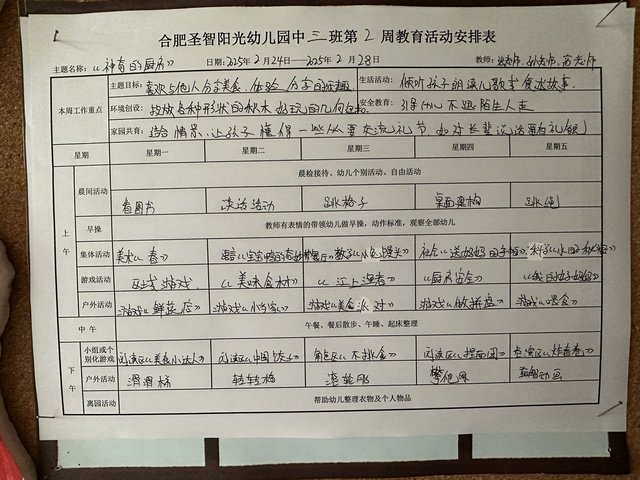 合肥圣智阳光幼儿园中三班第2周教育活动安排表
主题名称:《神奇的厨房》 日期:2025年2月24日—2025年2月28日 教师:
本周工作重点
主题目标:喜欢与他人分享美食,体验分享的乐趣 生活活动:倾听孩子朗读儿歌
环境创设:投放各种形状的积木 安全教育:引导幼儿不跟陌生人走
家园共育:结合情景,让孩子懂得一些从要交流礼节,如对长辈说话要有礼貌
星期 星期一 星期二 星期三 星期四 星期五
上午
晨间活动 晨检接待、幼儿个别活动、自由活动
看图书 谈话活动 跳格子 桌面建构 跳绳
早操 教师有表情的带领幼儿做早操,动作标准,观察全部幼儿
集体活动 美术《春》 语言 数学《小包馒头》 社会《送妈妈的 科学
游戏活动 区域游戏 《美味食材》 《江上渔者》 《厨房安全》 《我的好妈妈》
户外活动 游戏《鲜蔬店》 游戏《小当家》 游戏《美食派对》 游戏《做拼盘》 游戏《喂食》
中午 午餐、餐后散步、午睡、起床整理
下午
小组或个别化游戏 阅读区《美食小达人》 阅读区《中国饺子》 角色区《不挑食》 阅读区《捏面团》 表演区《炸春卷》
户外活动 滑滑梯 转转椅 滚轮胎 攀爬网 益智动画
离园活动 帮助幼儿整理衣物及个人物品